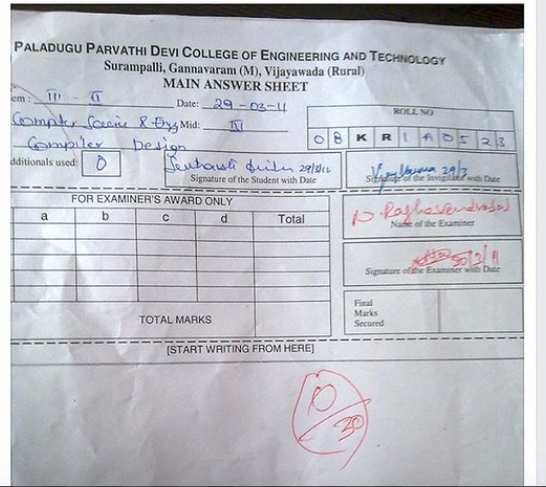 PALADUGU PARVATHI DEVI COLLEGE OF ENGINEERING AND TECHNOLOGY
Surampalli, Gannavaram (M), Vijayawada (Rural)
MAIN ANSWER SHEET
em : III - II Date: 29-03-11
ROLL NO
Computer Science & Engg Mid: IV
0 8 K R 1 A 0 5 2 3
Compiler Design
dditionals used: 0
29/3/11
Signature of the Student with Date
29/3
Signature of the Invigilator with Date
FOR EXAMINER'S AWARD ONLY
a b c d Total
Name of the Examiner
Signature of the Examiner with Date
Final
Marks
Secured
TOTAL MARKS
[START WRITING FROM HERE]